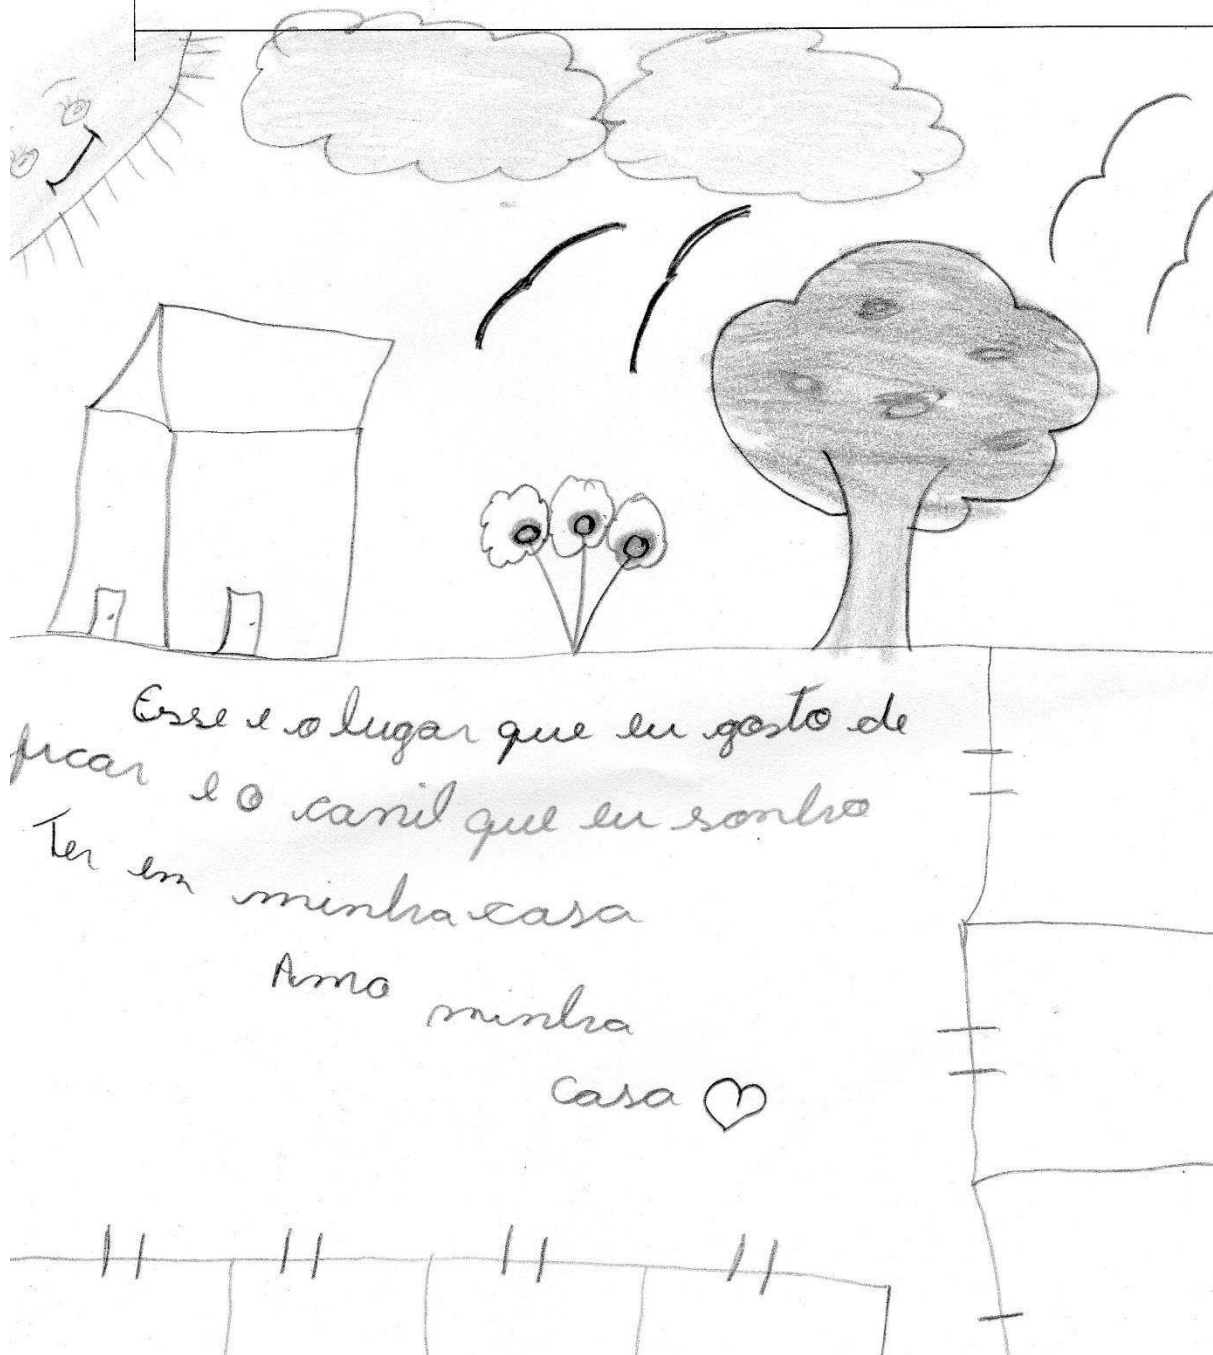 Esse e o lugar que eu gosto de
ficar e o canil que eu sonho
Ter em minha casa
Amo minha
casa